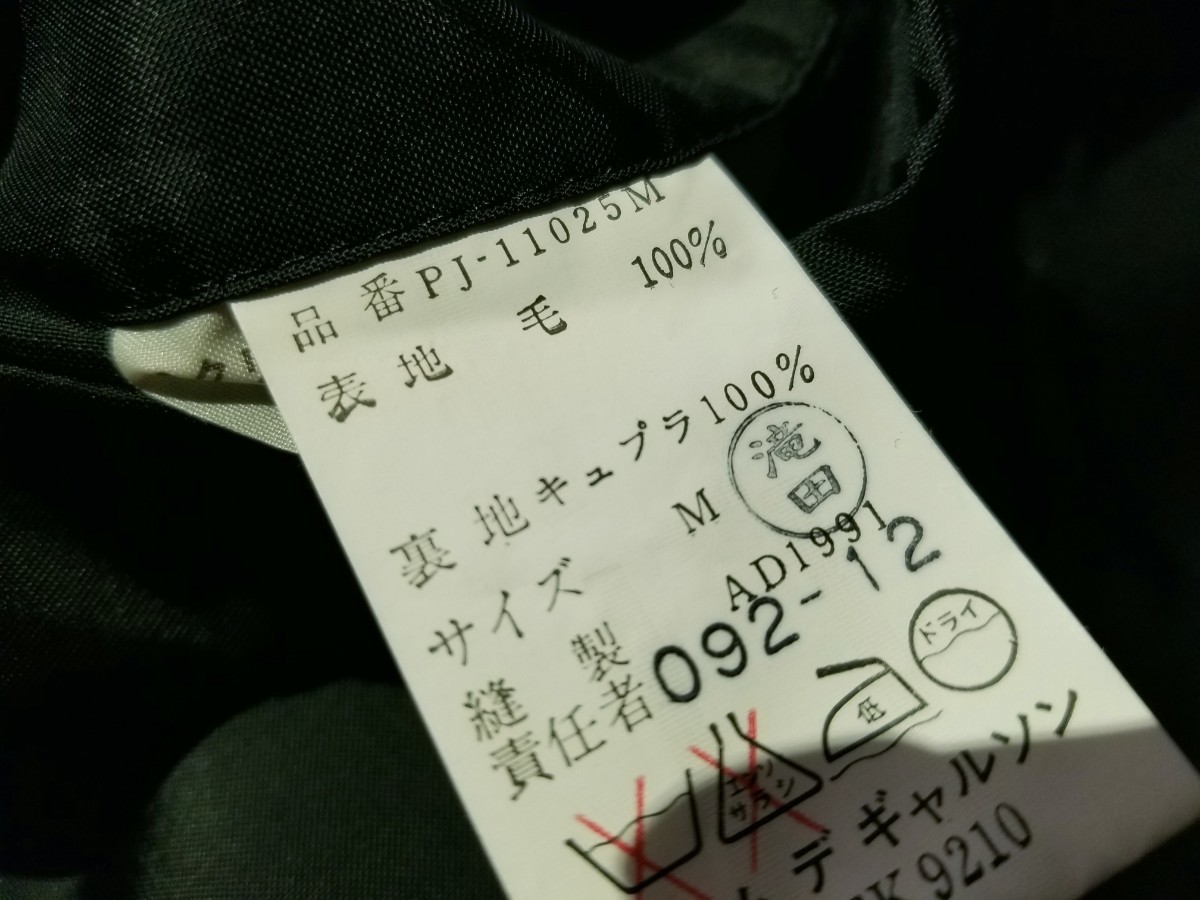 品 番 PJ-11025M
表 地 毛 100%
裏 地 キュプラ100%
サイズ M
滝田
AD1991
縫 製
責任者
092-12
エンソ
サラシ
低
ドライ
デ ギャルソン
K 9210